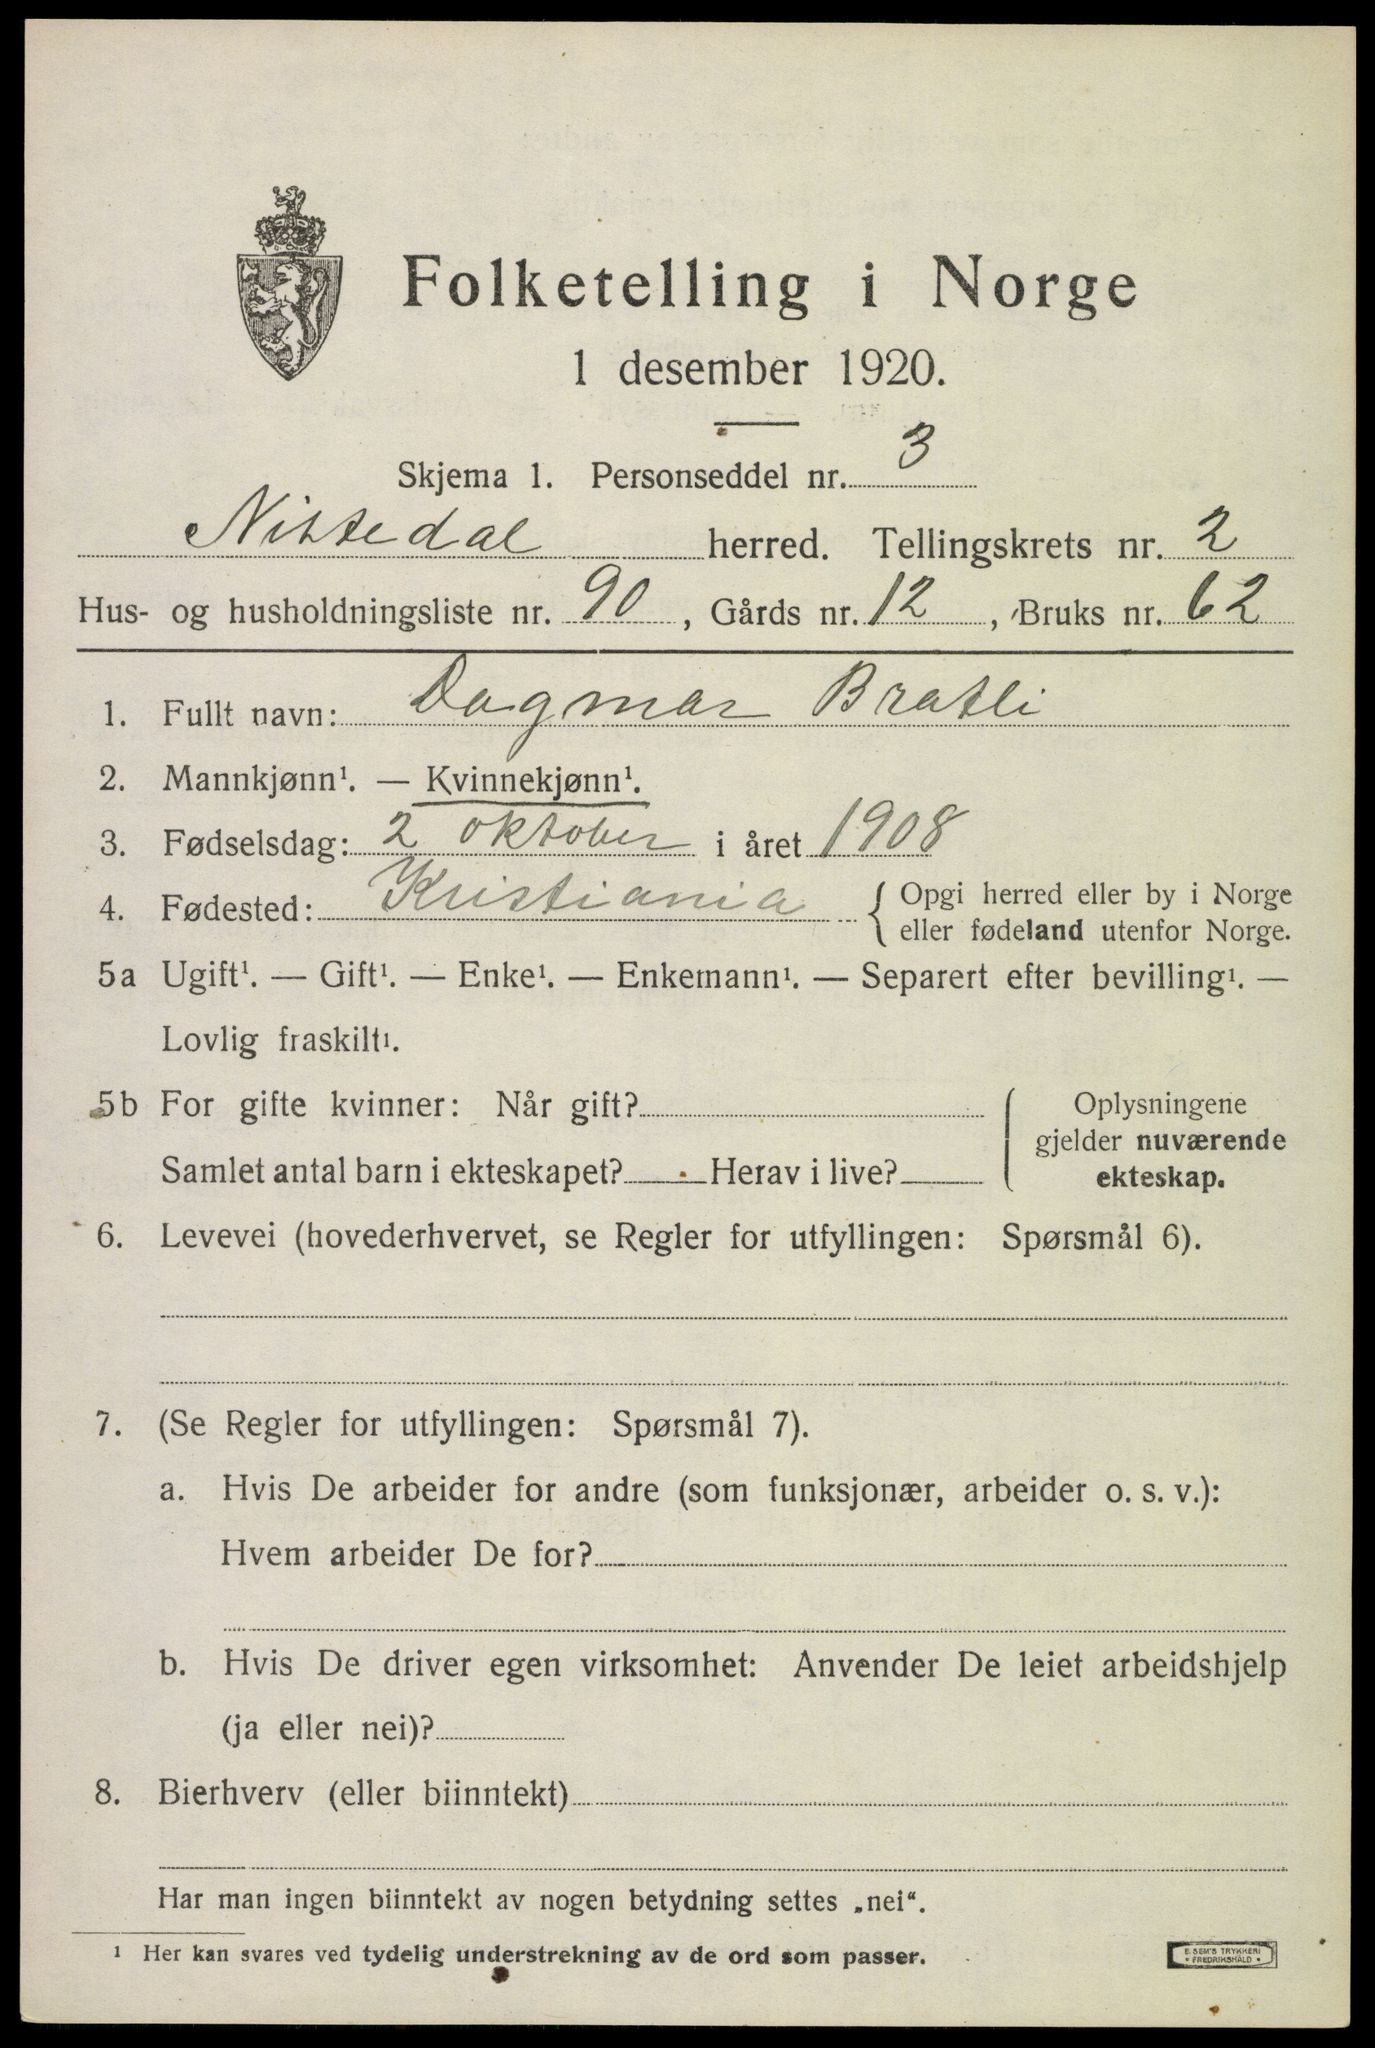 Folketelling i Norge
1 desember 1920.
Skjema 1. Personseddel nr. 3
Nittedal herred. Tellingskrets nr. 2
Hus- og husholdningsliste nr. 90, Gårds nr. 12, Bruks nr. 62
1. Fullt navn: Dagmar Bratli
2. Mannkjønn¹. — Kvinnekjønn¹.
3. Fødselsdag: 2 oktober i året 1908
4. Fødested: Kristiania { Opgi herred eller by i Norge
eller fødeland utenfor Norge.
5a Ugift¹. — Gift¹. — Enke¹. — Enkemann¹. — Separert efter bevilling¹. —
Lovlig fraskilt¹.
5b For gifte kvinner: Når gift?
Samlet antal barn i ekteskapet? Herav i live?
Oplysningene
gjelder nuværende
ekteskap.
6. Levevei (hovederhvervet, se Regler for utfyllingen: Spørsmål 6).
7. (Se Regler for utfyllingen: Spørsmål 7).
a. Hvis De arbeider for andre (som funksjonær, arbeider o. s. v.):
Hvem arbeider De for?
b. Hvis De driver egen virksomhet: Anvender De leiet arbeidshjelp
(ja eller nei)?
8. Bierhverv (eller biinntekt)
Har man ingen biinntekt av nogen betydning settes „nei“.
¹ Her kan svares ved tydelig understrekning av de ord som passer.
E. SEM'S TRYKKERI
• FREDRIKSHALD •